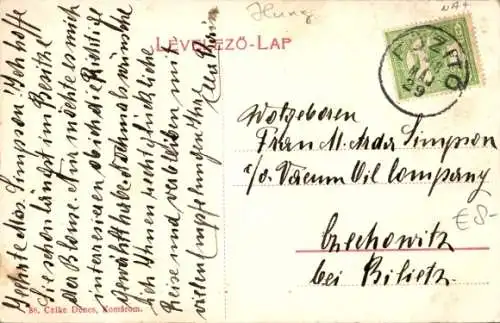 Hung.
LEVELEZŐ-LAP
Geehrte Mrs. Simpson! Ich hoffe
Sie schon längst im Besitze
der Blouse. Nun möchte es mich
interessieren ob ich die Richtige
gewählt habe. Nochmals wünsche
ich Ihnen recht glückliche
Reise und verbleibe mit
vielen Empfehlungen Ihre
Wolgeboren
Frau M. Ada Simpson
c/o. Vacuum Oil Company
Czechowitz
bei Bilietz.
£8-
86. Czike Dénes, Komárom.